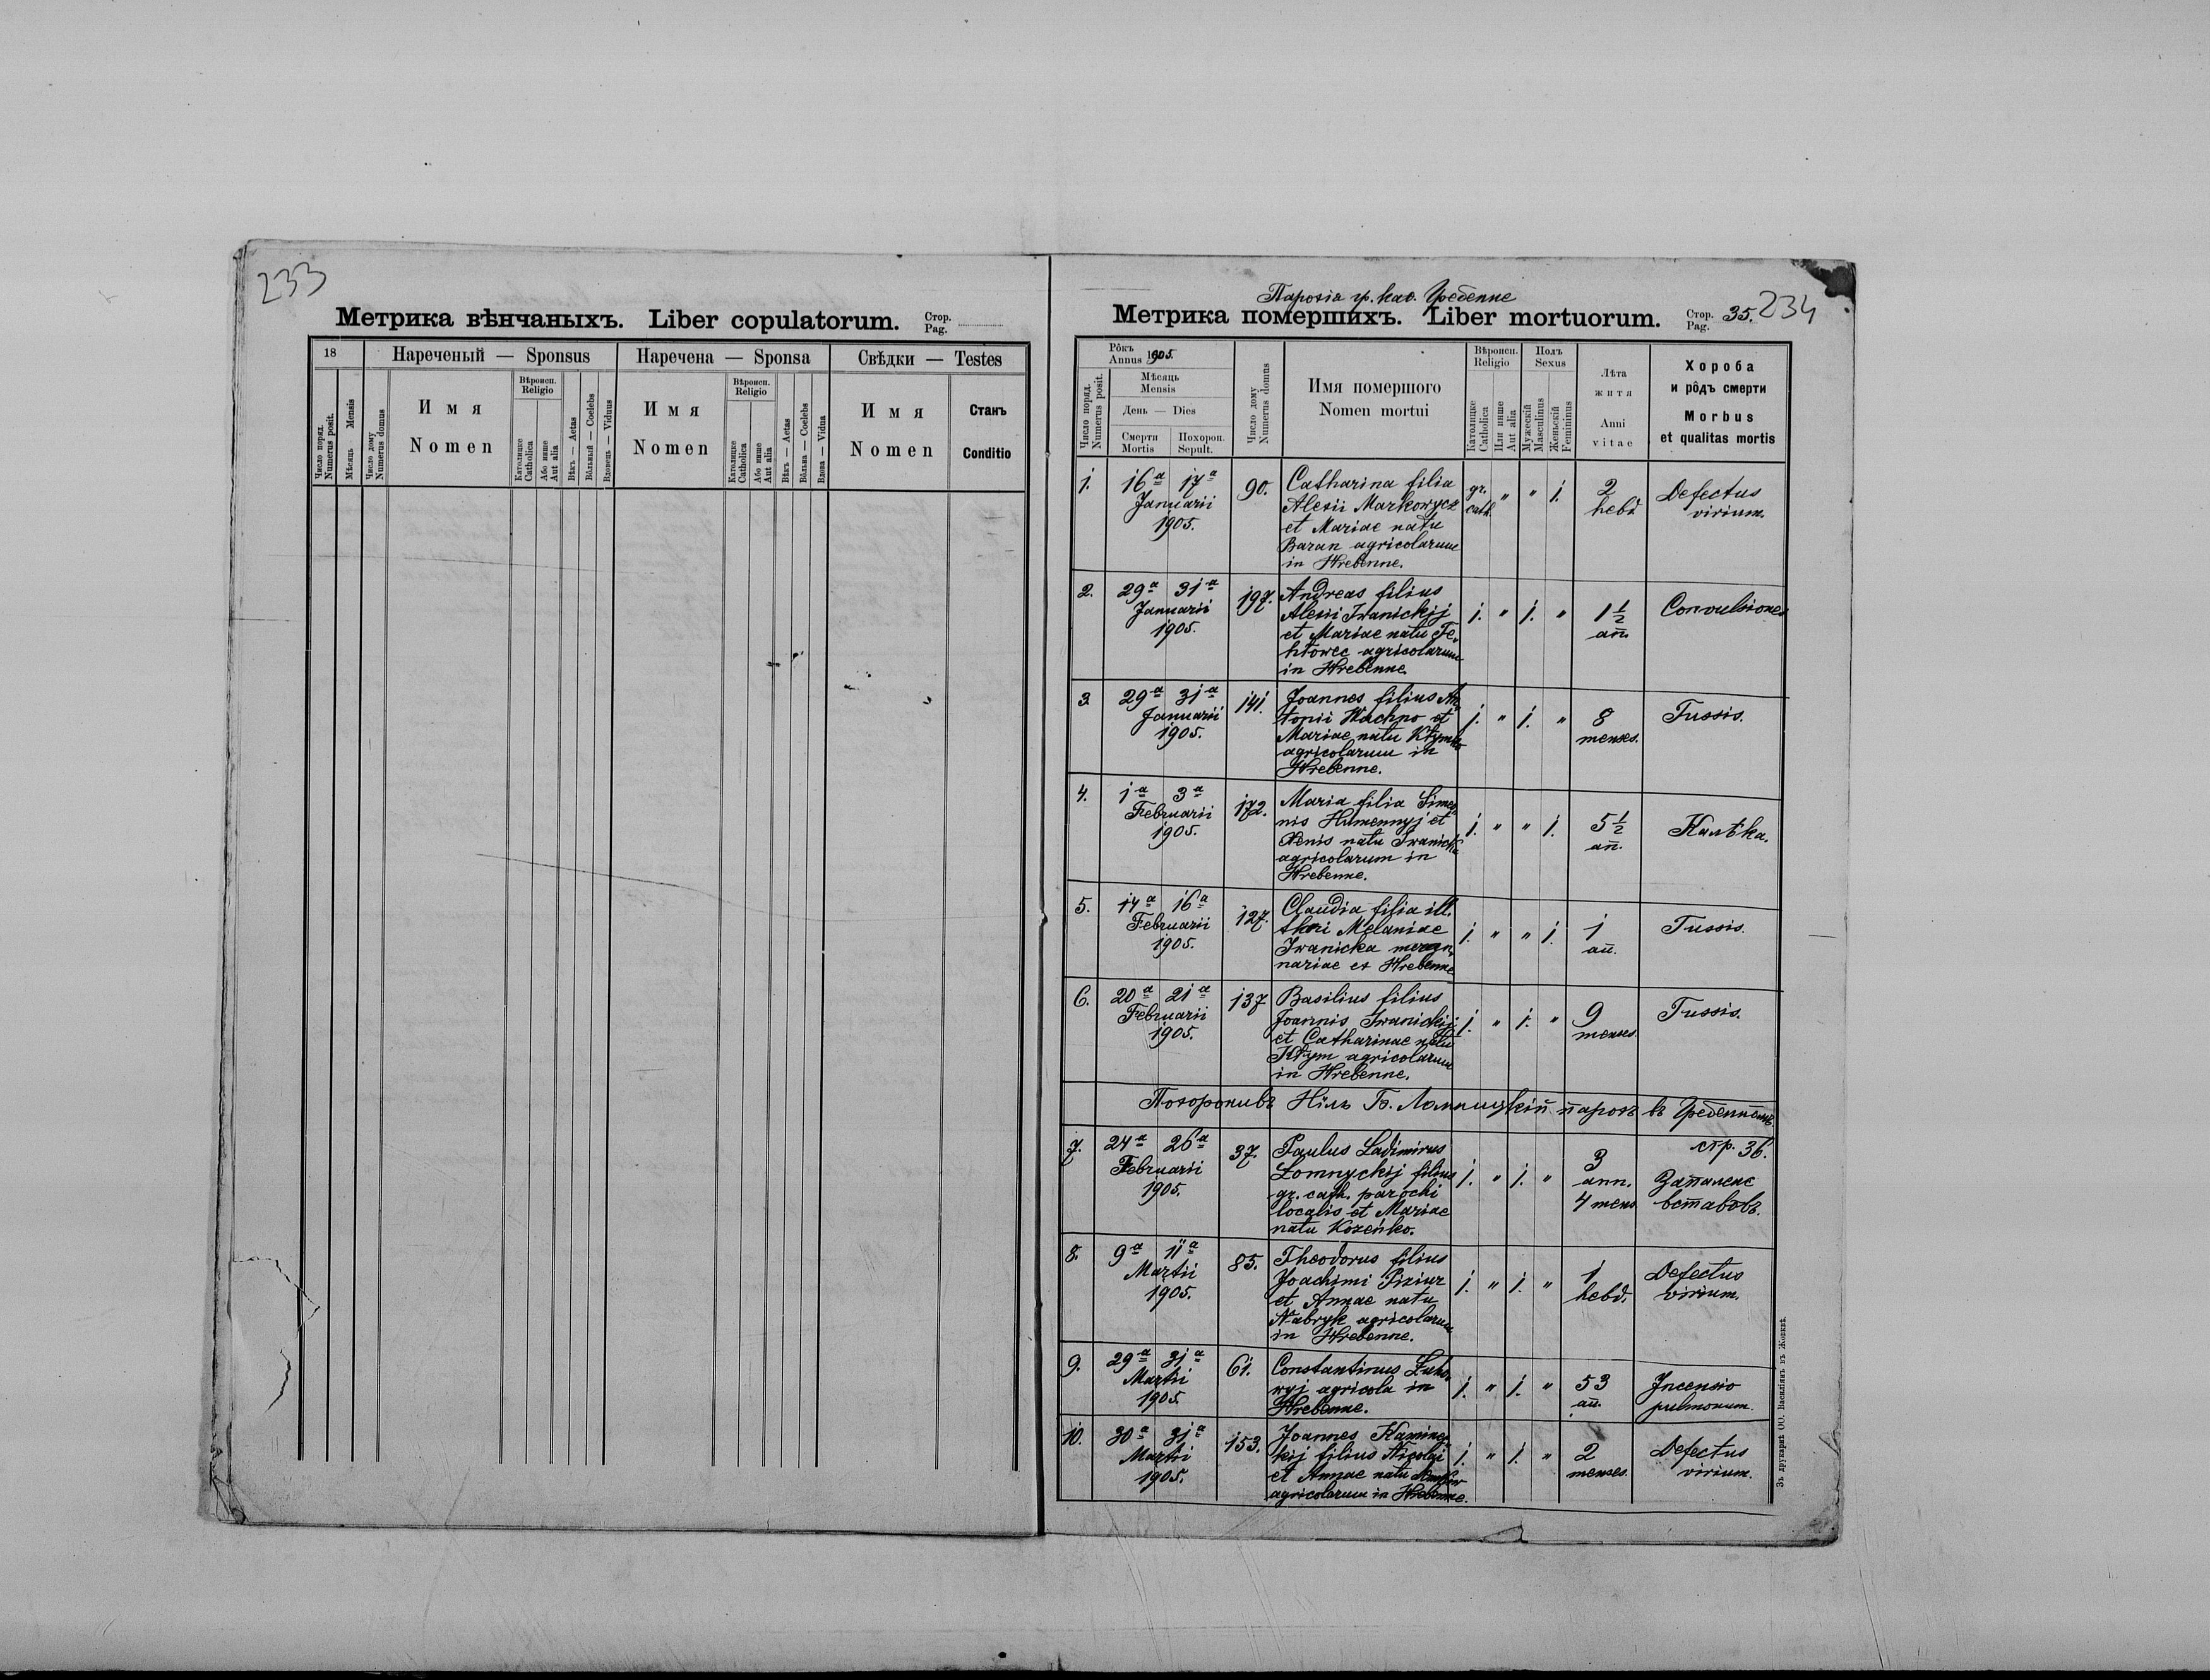 233
Метрика вѣнчаныхъ. Liber copulatorum. Стор. Pag.
18
Нареченый — Sponsus
Наречена — Sponsa
Свѣдки — Testes
Число поряд. Numerus posit.
Мѣсяць Mensis
Число дому Numerus domus
Имя Nomen
Вѣроисп. Religio
Католицке Catholica
Або инше Aut alia
Вѣкъ — Aetas
Вôльный — Coelebs
Вдовець — Viduus
Имя Nomen
Вѣроисп. Religio
Католицке Catholica
Або инше Aut alia
Вѣкъ — Aetas
Вôльна — Coelebs
Вдова — Vidua
Имя Nomen
Станъ Conditio
Парохія гр. каѳ. Гребенне
Метрика помершихъ. Liber mortuorum. Стор. Pag. 35. 234
Рôкъ Annus 1905.
Мѣсяць Mensis
День — Dies
Число поряд. Numerus posit.
Смерти Mortis
Похорон. Sepult.
Число дому Numerus domus
Имя помершого Nomen mortui
Вѣроисп. Religio
Католицке Catholica
Или инше Aut alia
Полъ Sexus
Мужескій Masculinus
Женьскій Femininus
Лѣта житя Anni vitae
Хороба и рôдъ смерти Morbus et qualitas mortis
1. 16a 17a 90. Catharina filia gr. " " 1. 2 Defectus
Januarii Alexii Markowycz cath. hebd virium.
1905. et Mariae natu
Baran agricolarum
in Hrebenne.
2. 29a 31a 197. Andreas filius
Januarii Alexii Iwanickij 1. " 1. " 1 1/2 Convulsiones
1905. et Mariae natu Fe- an.
htowec agricolarum
in Hrebenne
3. 29a 31a 141. Joannes filius An-
Januarii tonii Wachno et 1. " 1. " 8 Tussis.
1905. Mariae natu menses.
agricolarum in
Hrebenne.
4. 1a 3a 172. Maria filia Simeo
Februarii nis Humennyj et 1. " " 1. 5 1/2 Калѣка.
1905. Xenis natu Iwanicka an.
agricolarum in
Hrebenne.
5. 14a 16a 127. Claudia filia ill.
Februarii thori Melaniae 1. " " 1. 1 Tussis.
1905. Iwanicka an.
nariae ex Hrebenne
6. 20a 21a 137 Basilius filius
Februarii Joannis Iwanickij 1. " 1. " 9 Tussis.
1905. et Catharinae natu menses.
Kłym agricolarum
in Hrebenne.
Похоронивъ Нілъ Ломницкій парох въ Гребеннѣмъ.
стр. 36.
7. 24a 26a 37. Paulus Ladimirus 3
Februarii Łomnyckij filius 1. " 1. " ann. Запаленє
1905. gr. cath. parochi 4 mens. вставовъ.
localis et Mariae
natu Kozeńko.
8. 9a 11a 85. Theodorus filius
Martii Joachimi Piziur 1. " 1. " 1 Defectus
1905. et Annae natu hebd. virium.
Nabryk agricolarum
in Hrebenne.
9. 29a 31a 61. Constantinus
Martii wyj agricola in 1. " 1. " 53 Incensio
1905. Hrebenne. an. pulmonum.
10. 30a 31a 153. Joannes Kamińs-
Martii kij filius Nicolai 1. " 1. " 2 Defectus
1905. et Annae natu menses. virium.
agricolarum in Hrebenne.
Зъ друкарнѣ ОО. Василіянъ въ Жовквѣ.